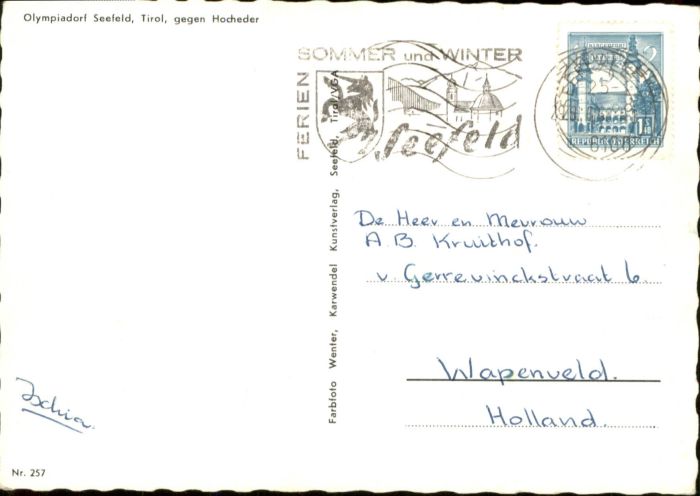 Olympiadorf Seefeld, Tirol, gegen Hocheder
SOMMER und WINTER
FERIEN
Seefeld
REPUBLIK ÖSTERREICH
Farbfoto Wenter, Karwendel Kunstverlag, Seefeld, Tirol/VGA
De Heer en Mevrouw
A.B. Kruithof.
v. Gerrevinckstraat 6.
Wapenveld.
Holland.
Nr. 257